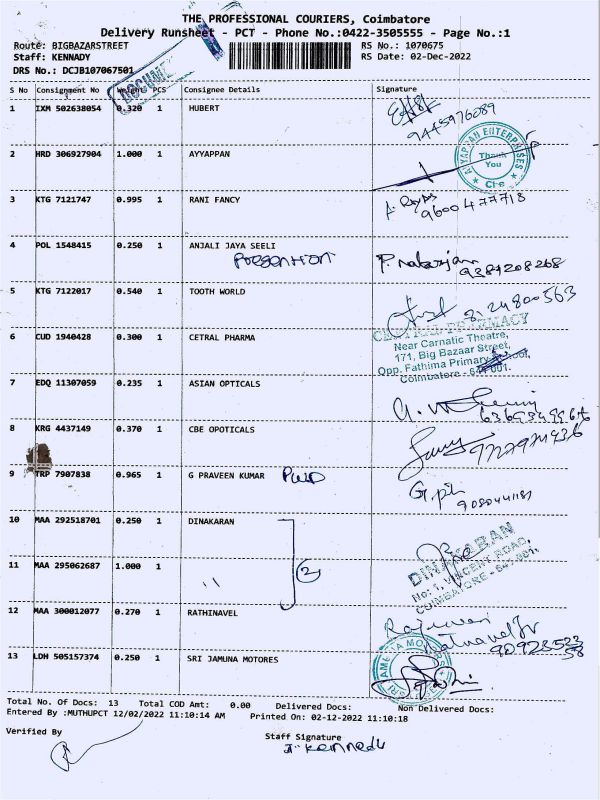 THE PROFESSIONAL COURIERS, Coimbatore
Delivery Runsheet - PCT - Phone No.:0422-3505555 - Page No.:1
Route: BIGBAZARSTREET RS No.: 1070675
Staff: KENNADY RS Date: 02-Dec-2022
DRS No.: DCJB107067501
S No Consignment No Weight PCS Consignee Details Signature
1 IXM 502638054 0.320 1 HUBERT
9445976089
2 HRD 306927904 1.000 1 AYYAPPAN
AYYAPPAN ENTERPRISES Thank You Cbe
3 KTG 7121747 0.995 1 RANI FANCY
9600477718
4 POL 1548415 0.250 1 ANJALI JAYA SEELI
9384208268
5 KTG 7122017 0.540 1 TOOTH WORLD
6 CUD 1940428 0.300 1 CETRAL PHARMA
CENTRAL PHARMACY
Near Carnatic Theatre,
171, Big Bazaar Street,
Opp. Fathima Primary School,
Coimbatore - 641 001.
7 EDQ 11307059 0.235 1 ASIAN OPTICALS
8 KRG 4437149 0.370 1 CBE OPOTICALS
9 TRP 7907838 0.965 1 G PRAVEEN KUMAR
10 MAA 292518701 0.250 1 DINAKARAN
2
11 MAA 295062687 1.000 1
DINAKARAN
No: 1, VINCENT ROAD,
COIMBATORE - 641 001.
12 MAA 300012077 0.270 1 RATHINAVEL
13 LDH 505157374 0.250 1 SRI JAMUNA MOTORES
Total No. Of Docs: 13 Total COD Amt: 0.00 Delivered Docs: Non Delivered Docs:
Entered By :MUTHUPCT 12/02/2022 11:10:14 AM Printed On: 02-12-2022 11:10:18
Verified By Staff Signature
J. Kennedy